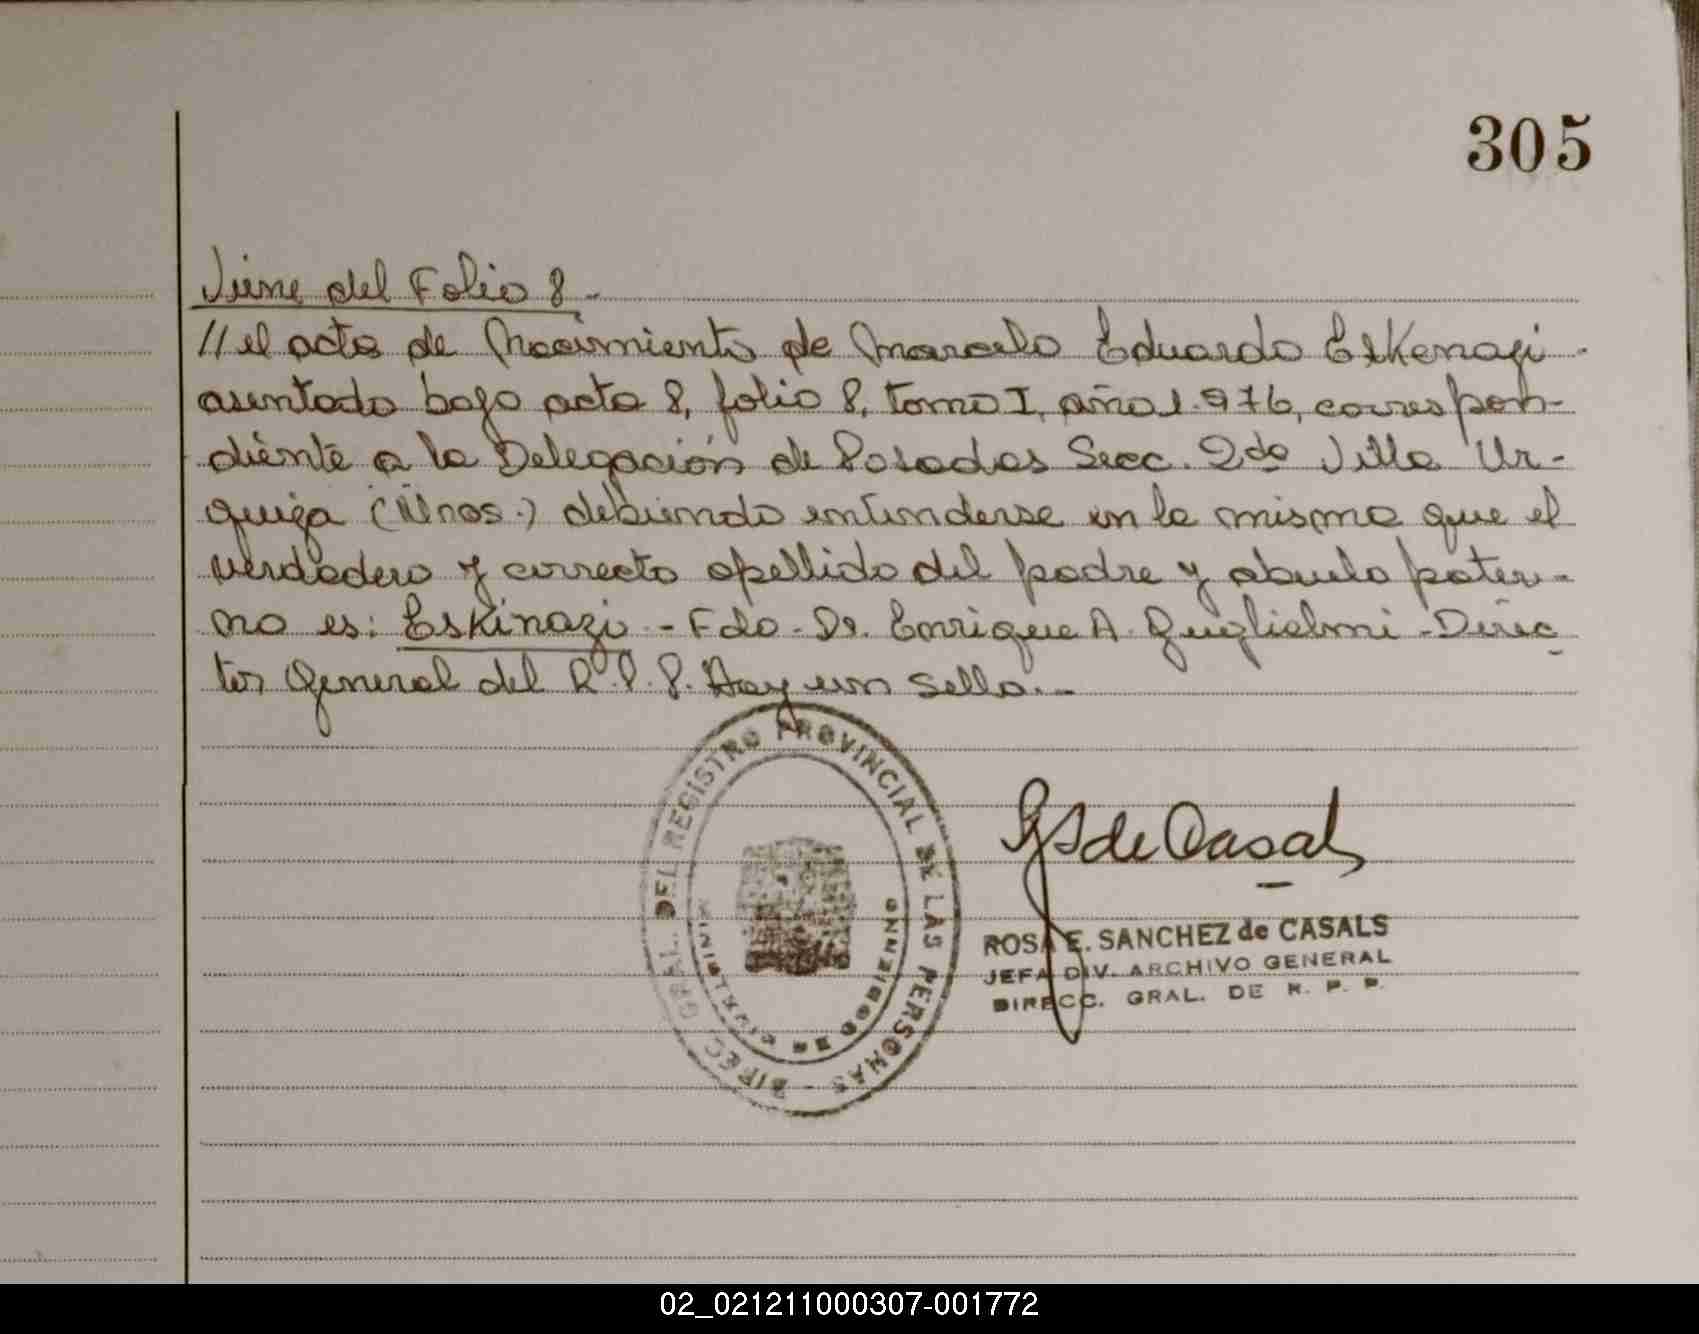 305
Viene del Folio 8.-
//el acta de Nacimiento de Marcelo Eduardo Eskenazi
asentada bajo acta 8, folio 8, tomo I, año 1.976, correspon-
diente a la Delegación de Posadas Secc. 2da Villa Ur-
quiza (Mnes.) debiendo entenderse en la misma que el
verdadero y correcto apellido del padre y abuelo pater-
no es: Eskinazi - Fdo - Dr. Enrique A. Guglielmi - Direc
tor General del R.P.P. Hay un sello.-
DIREC. GRAL. DEL REGISTRO PROVINCIAL DE LAS PERSONAS -
MINISTERIO DE GOBIERNO
RS de Casals
ROSA E. SANCHEZ de CASALS
JEFA DIV. ARCHIVO GENERAL
DIRECC. GRAL. DE R. P. P.
02_021211000307-001772